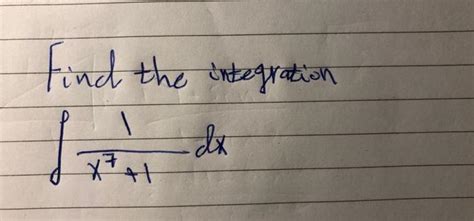 Find the integration
∫ 1/(x⁷+1) dx